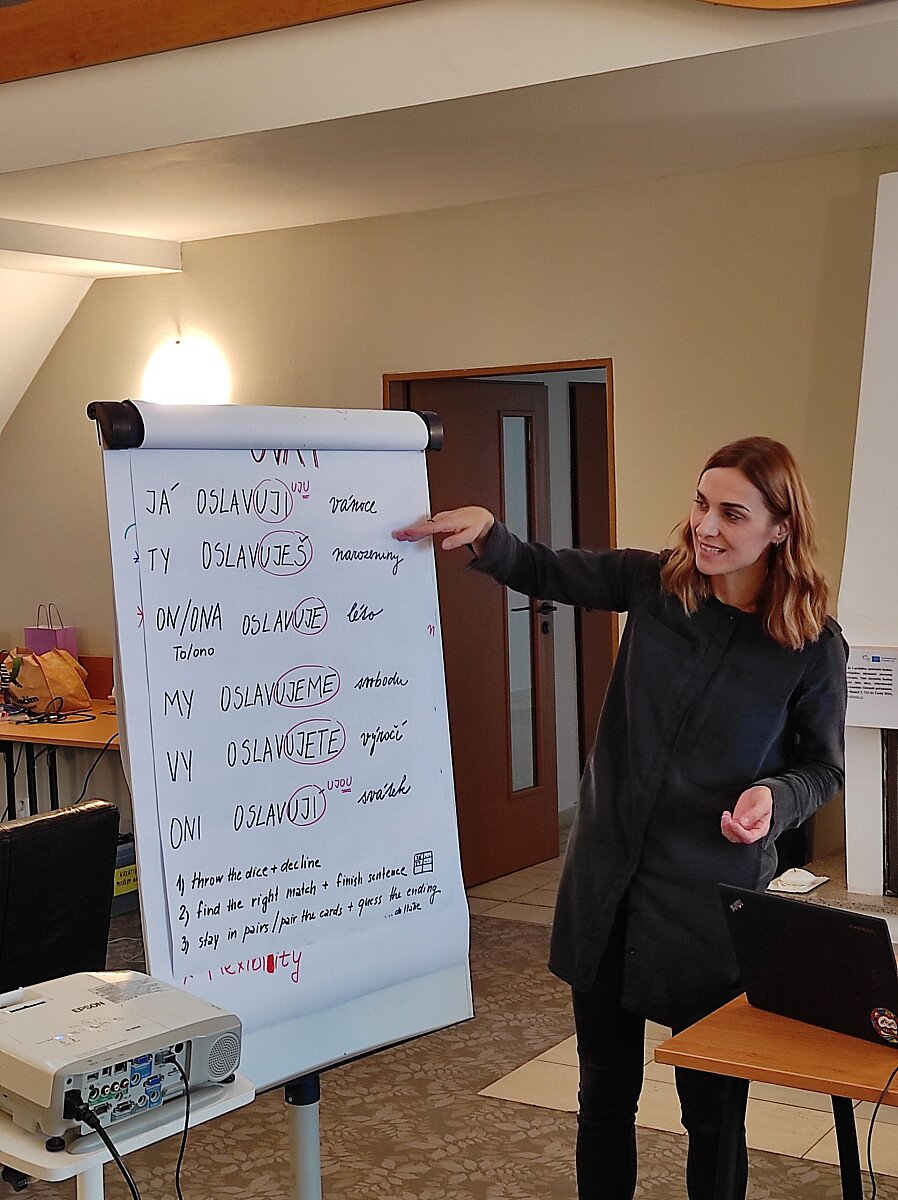 OVAT
JÁ OSLAVUJI UJU vánoce
TY OSLAVUJEŠ narozeniny
ON/ONA OSLAVUJE léto
To/ono
MY OSLAVUJEME svobodu
VY OSLAVUJETE výročí
ONI OSLAVUJÍ UJOU svátek
1) throw the dice + decline
2) find the right match + finish sentence
3) stay in pairs/pair the cards + guess the ending
flexibility
EPSON